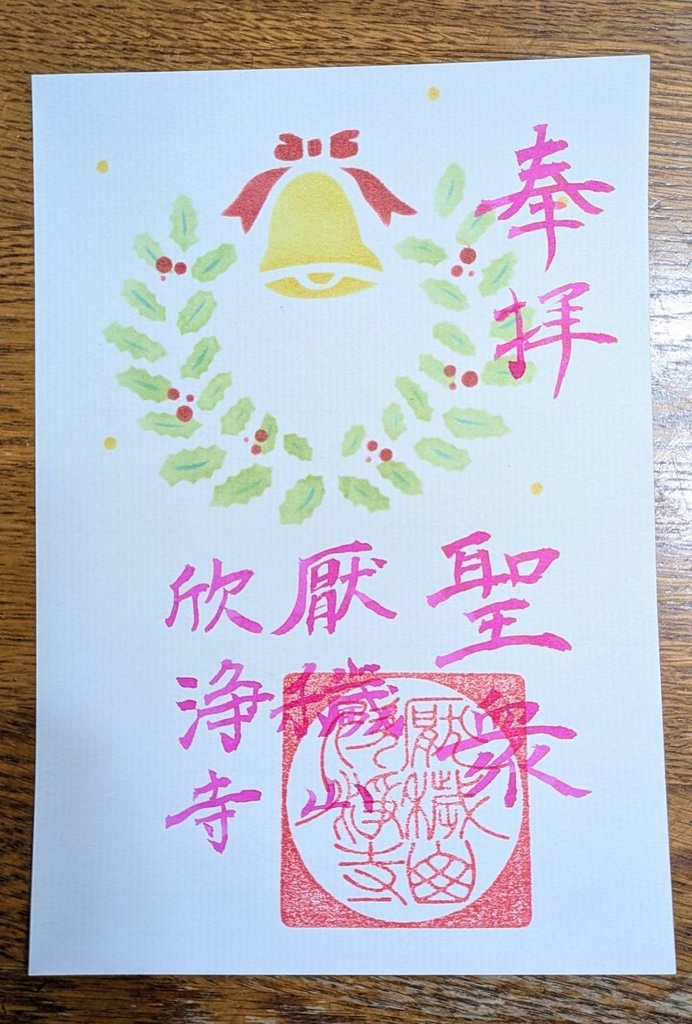 奉拝
聖衆
厭穢山
欣浄寺
厭穢山
欣浄寺